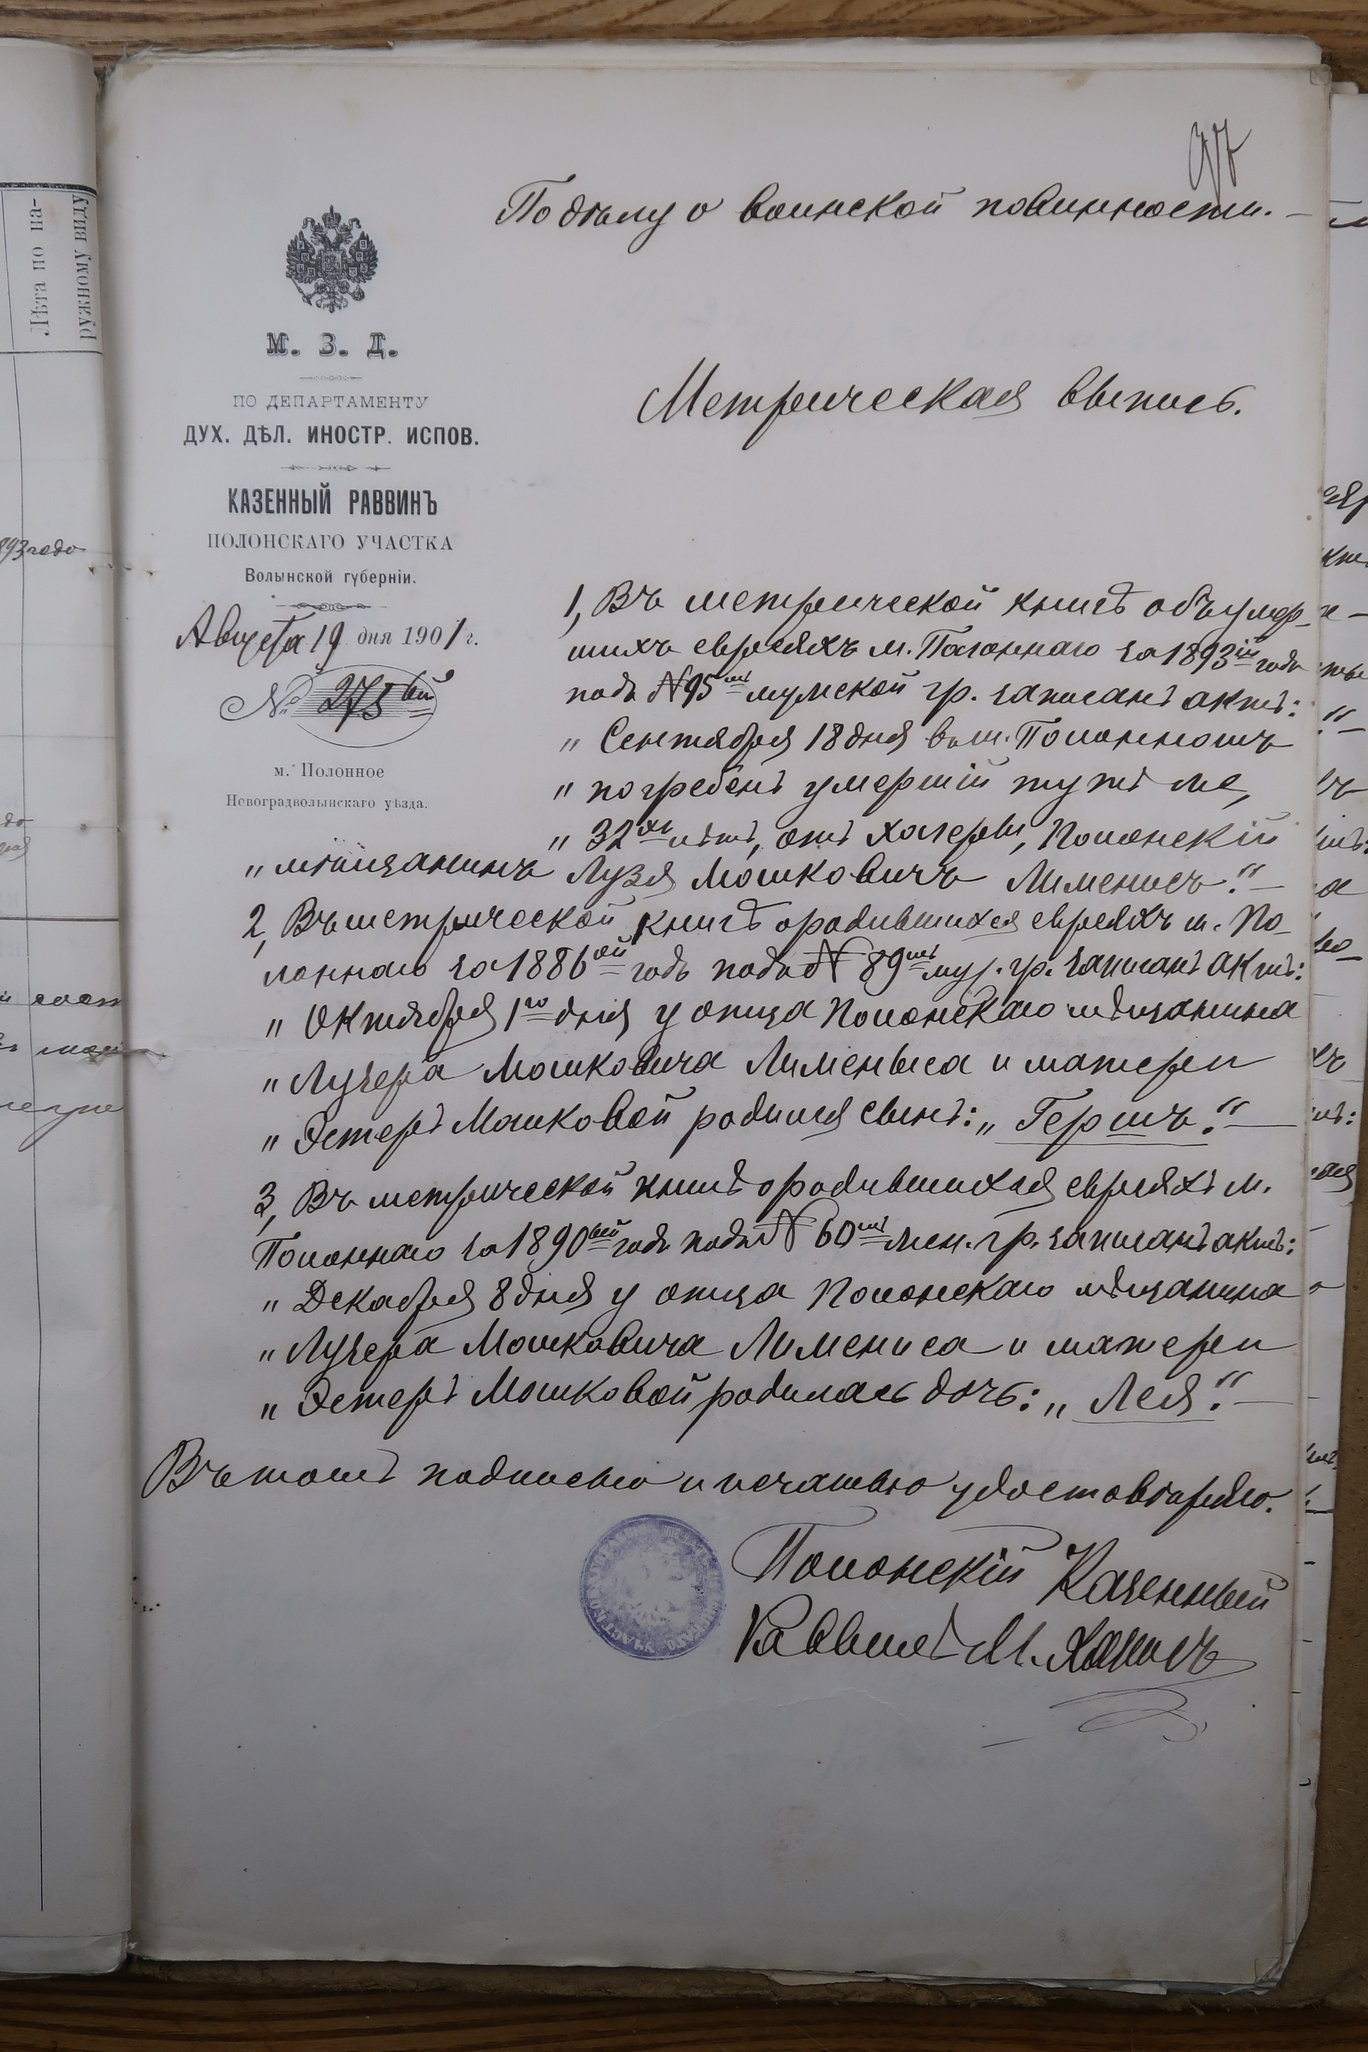 Лѣта по на-
ружному виду
893 года
По дѣлу о воинской повинности.
М. З. Д.
ПО ДЕПАРТАМЕНТУ
ДУХ. ДѢЛ. ИНОСТР. ИСПОВ.
КАЗЕННЫЙ РАВВИНЪ
ПОЛОНСКАГО УЧАСТКА
Волынской губерніи.
Августа 19 дня 1901 г.
№ 275ый
м. Полонное
Новоградволынскаго уѣзда.
Метрическая выпись.
1, Въ метрической книгѣ объ умер-
шихъ евреяхъ м. Полоннаго за 1893ій годъ
подъ № 95мъ мужской гр. записанъ актъ:
„ Сентября 18 дня въ м. Полонномъ
„ погребенъ умершій тутъ же,
„ 32хъ лѣтъ, отъ холеры, Полонскій
„ мѣщанинъ Лузя Мошковичъ Лименисъ."
2, Въ метрической книгѣ о родившихся евреяхъ м. По-
лоннаго за 1886ой годъ подъ № 89мъ муж. гр. записанъ актъ:
„ Октября 1го дня у отца Полонскаго мѣщанина
„ Лузера Мошковича Лименыса и матери
„ Эстеръ Мошковой родился сынъ: „ Гершъ."
3, Въ метрической книгѣ о родившихся евреяхъ м.
Полоннаго за 1890ый годъ подъ № 60мъ жен. гр. записанъ актъ:
„ Декабря 8 дня у отца Полонскаго мѣщанина
„ Лузера Мошковича Лимениса и матери
„ Эстеръ Мошковой родилась дочь: „ Лея."
Въ томъ подписью и печатью удостовѣряю.
Полонскій Казенный
Раввинъ М.